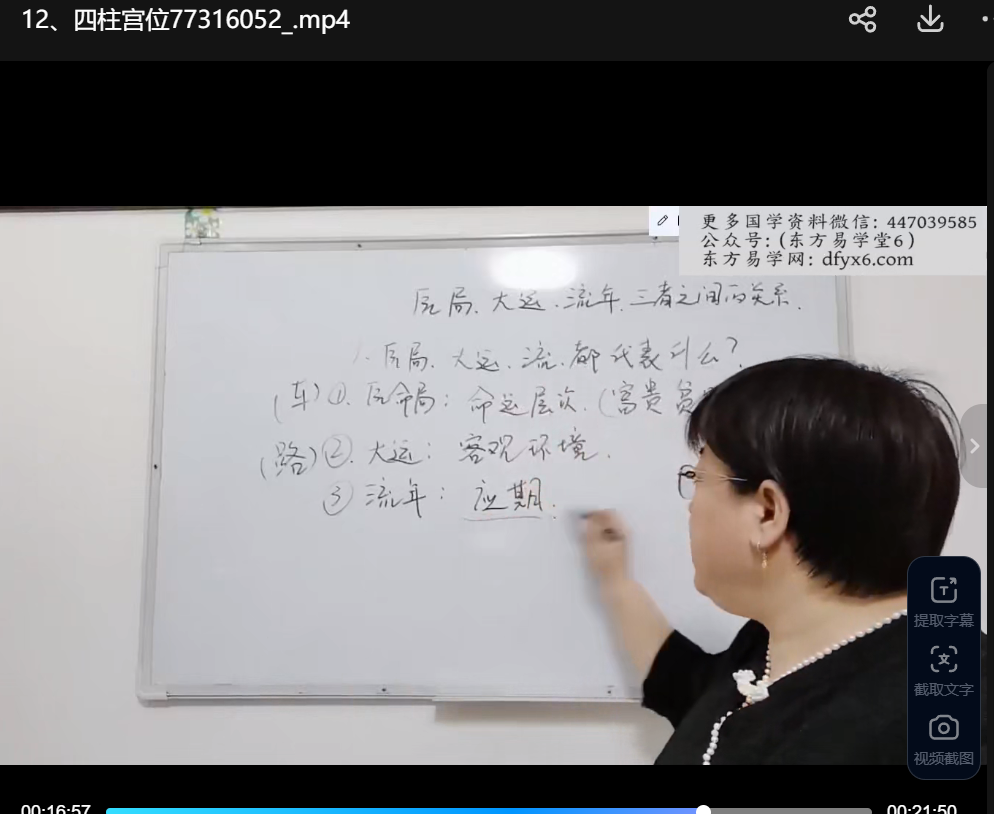 12、四柱宫位77316052_.mp4
更多国学资料微信: 447039585
公众号:(东方易学堂6)
东方易学网: dfyx6.com
原局、大运、流年、三者之间的关系.
1、原局、大运、流、都代表什么?
(车)①、原命局: 命运层次.(富贵贫
(路)②、大运: 客观环境.
③流年: 应期.
提取字幕
截取文字
视频截图
00:16:57
00:21:50